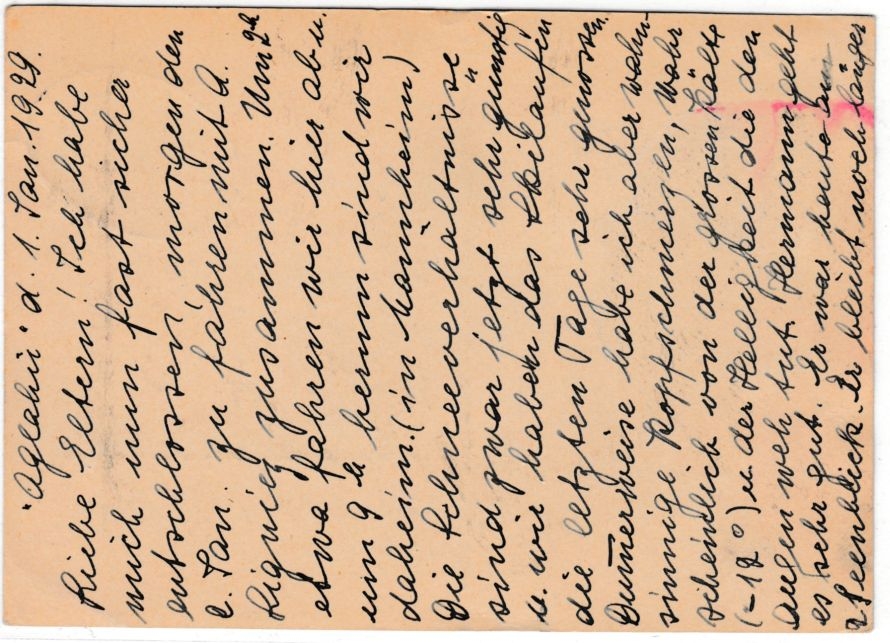 "Aglahü" d. 1. Jan. 1929.
Liebe Eltern! Ich habe
mich nun fast sicher
entschlossen morgen den
2. Jan. zu fahren mit A.
zusammen. Um 2h
etwa fahren wir hier ab u.
um 9h herum sind wir
daheim. (in Mannheim)
Die Schneeverhältnisse
sind zwar jetzt sehr günstig
u. wir haben das Skilaufen
die letzten Tage sehr genossen.
Dummerweise habe ich aber wahn-
sinnige Kopfschmerzen, wahr
scheinlich von der grossen Kälte
(-18°) u. der Helligkeit die den
Augen weh tut. Hermann geht
es sehr gut. Er war heute am
Seeblick. Er bleibt noch länger